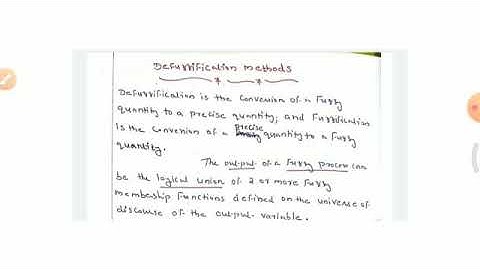 Defuzzification methods
Defuzzification is the conversion of a fuzzy
quantity to a precise quantity, and fuzzification
is the conversion of a precise quantity to a fuzzy
quantity.
The output of a fuzzy process can
be the logical union of 2 or more fuzzy
membership functions defined on the universe of
discourse of the output variable.